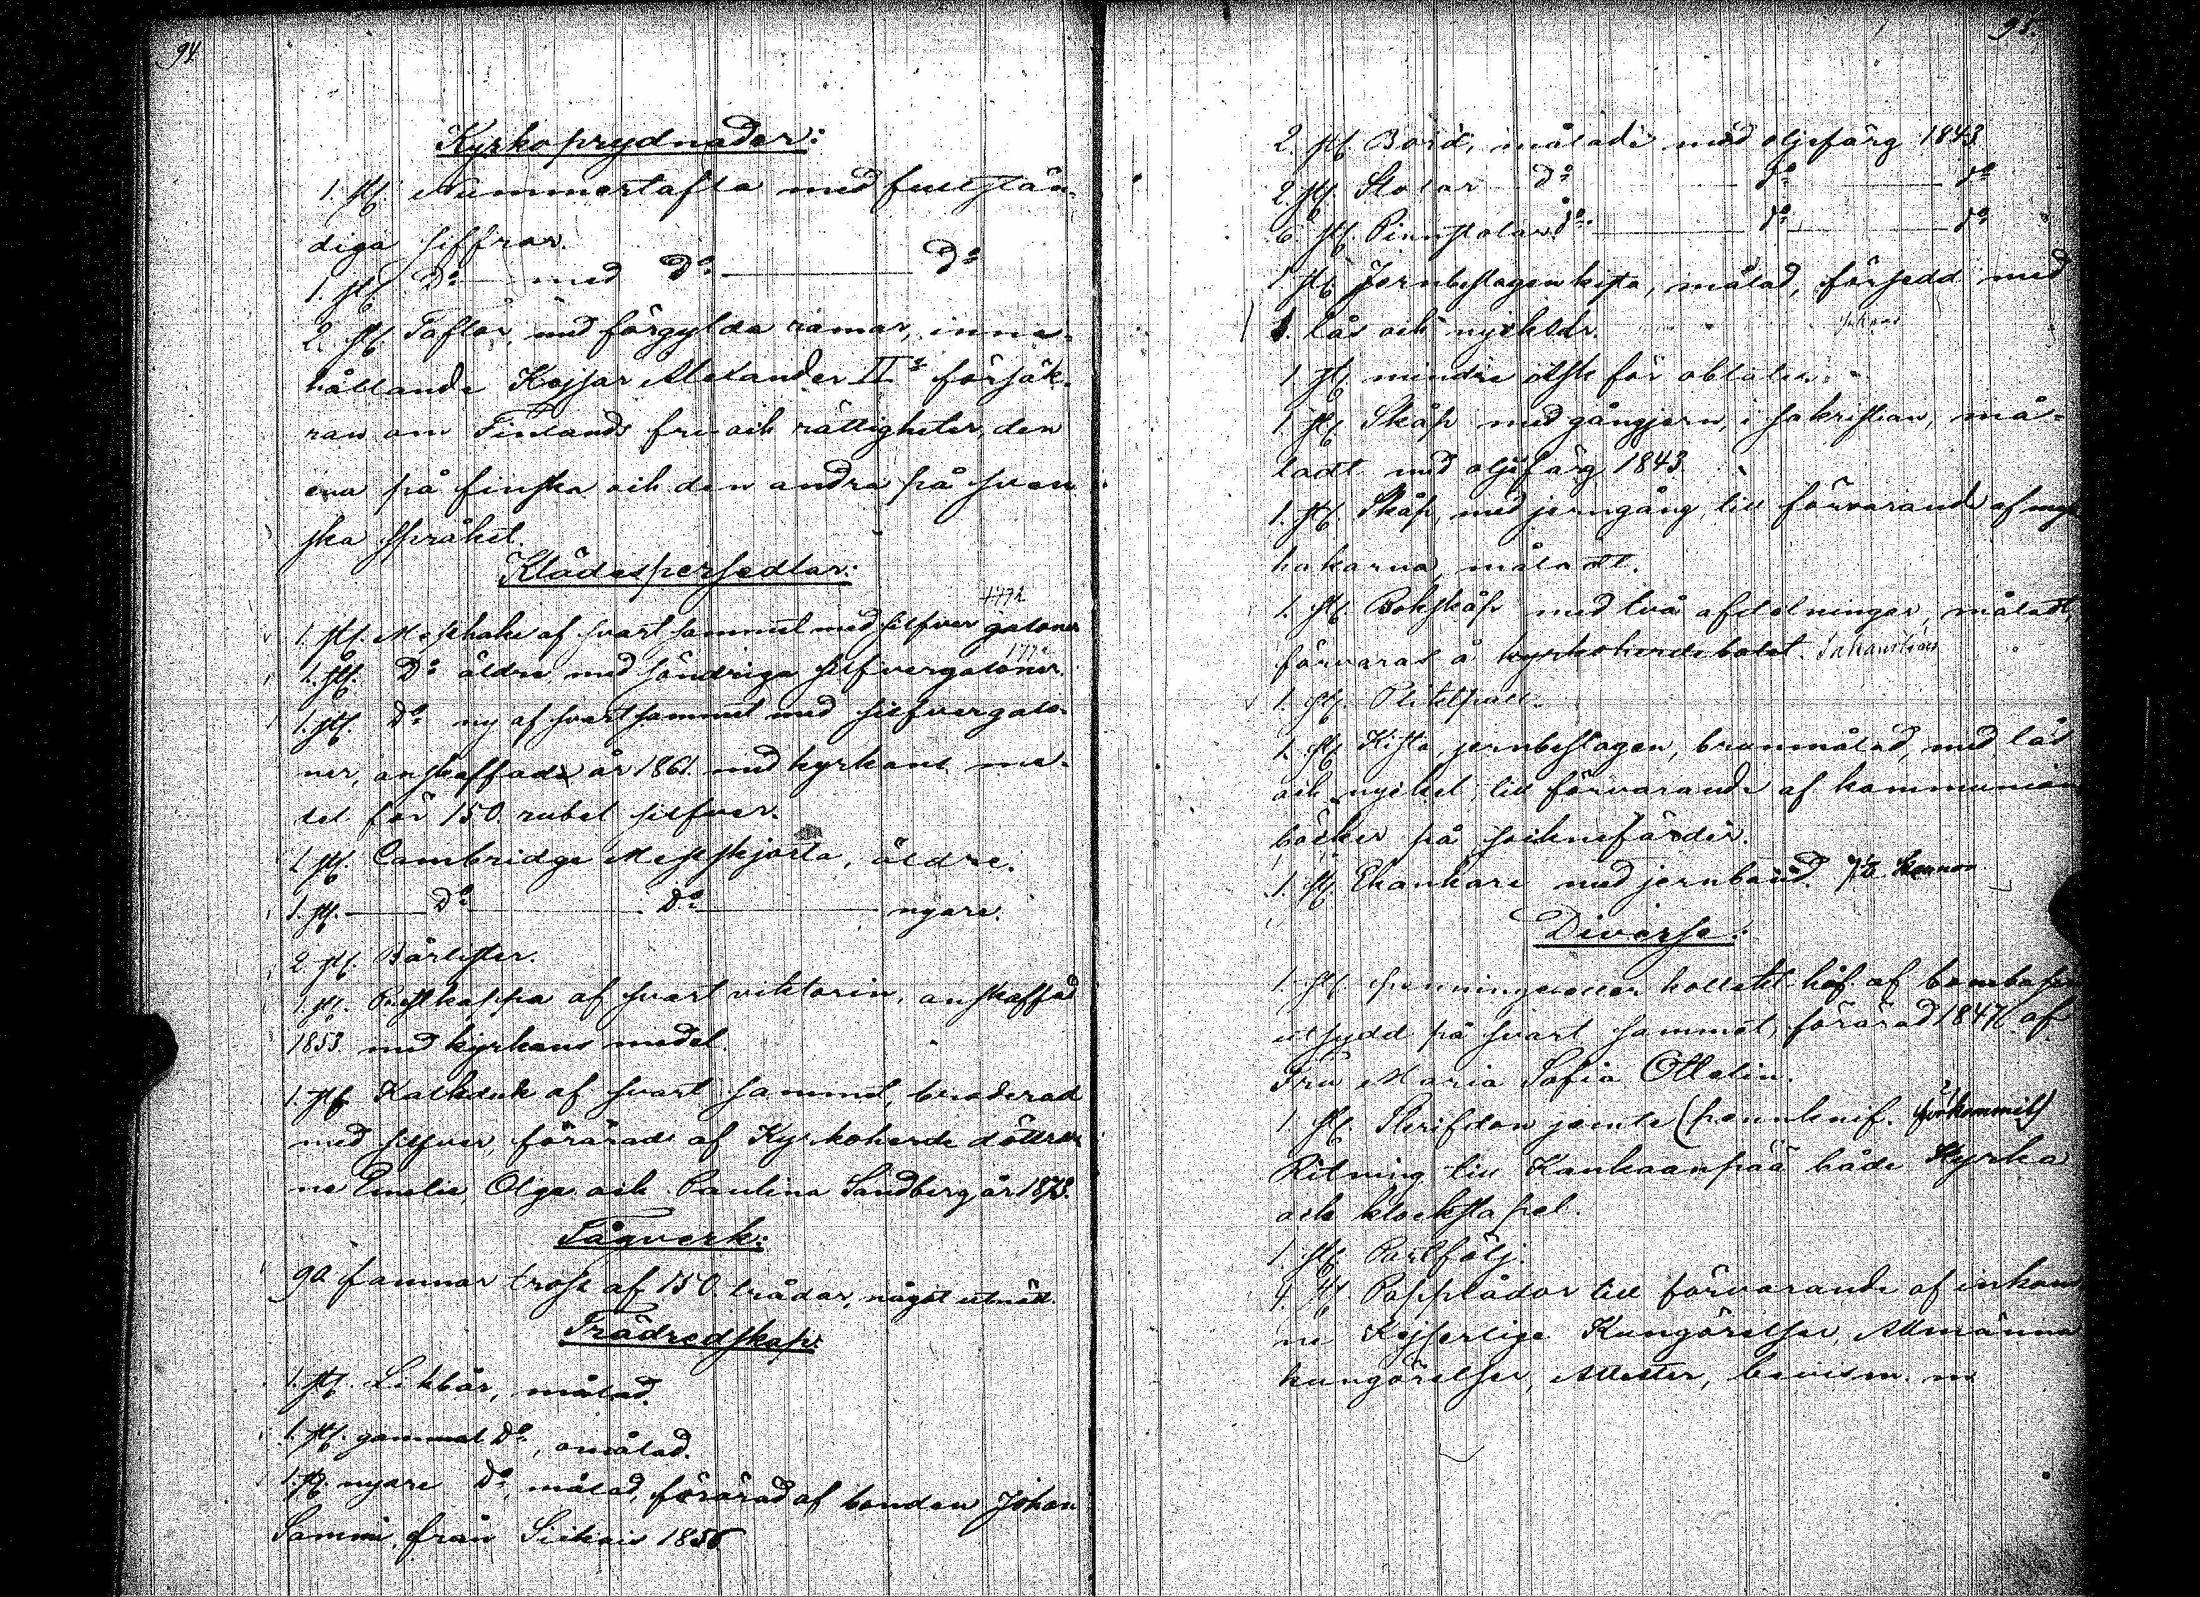 94.
Kyrkoprydnader:
1. st. Nummertafla med fullstän-
diga siffror.
1. st. Do med Do Do
2. st. Taflor, med förgylda ramar, inne-
hållande Kejsar Alexander IIs försäk-
ran om Finlands fri och rättigheter, den
ena på finska och den andra på sven
ska språket.
Klädespersedlar:
1771
1. st. Messhake af svart sammet med silfver galoner
1. st. Do äldre med söndriga silfvergaloner.
1. st. Do ny af svart sammet med silfvergalo-
ner, anskaffade år 1861 med kyrkans me-
del för 150 rubel silfver.
1 st. Cambridge Messskjorta, äldre.
1. st. Do Do nyare.
2 st.
1. st. kappa af svart viktorin, anskaffad
1853 med kyrkans medel.
1. st. Kalkduk af svart sammet, broderad
med silfver, förärad af Kyrkoherde döttrar
na Emelie, Olga och Paulina Sandberg år 1873.
Tågverk:
90 famnar tross af 150 trådar, något utnött.
Trädredskap:
1. st. Likbår, målad.
1. st. gammal Do, omålad.
1. st. nyare Do, målad, förärad af bonden Johan
Sammi från Siikais 1856
95.
2. st. Bord, målade med oljefärg 1843
2. st. Stolar do do do
6 st. Pinnstolar do do do
1 st. Jernbeslagen kista, målad, försedd med
1. lås och nycklar.
1 st. mindre ask för oblater.
1 st. Skåp med gångjern, i sakristian, må-
ladt med oljefärg 1843
1. st. Skåp, med jerngång, till förvarande af mess
hakarna, måladt.
1. st. Bokskåp med två afdelningar, måladt,
förvaras å kyrkoherdebolet. Sakaristian
1. st.
1. st. Kista, jernbeslagen, brunmålad, med lås
och nyckel, till förvarande af kommunion
böcker på socknefärder.
1. st. Ekankare med jernband. 7½ Kannor
Diverse:
1 st. penninge eller kollekt håf af
utsydd på svart sammet, förärad 1847 af
Fru Maria Sofia Ottelin.
1 st. Skrifdon jemte (pennknif. förkommit)
Ritning till Kankaanpää både Kyrka
och klockstapel.
1 st.
4. st. Papplådor till förvarande af inkom
ne Kejserliga Kungörelser, Allmänna
kungörelser, Attester, bevis m. m